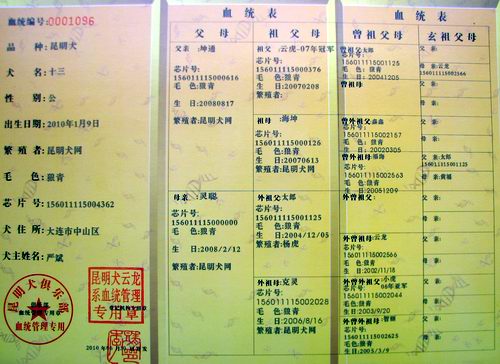 血统编号:0001096
品 种:昆明犬
犬 名:十三
性 别:公
出生日期:2010年1月9日
繁 殖 者:昆明犬网
毛 色:狼青
芯 片 号:156011115004362
犬 住 所:大连市中山区
犬主姓名:严斌
昆明犬俱乐部
血统管理专用
昆明犬云龙
系血统管理
专用章
血统表
父母
祖父母
父亲:坤通
芯片号:
156011115000616
毛 色:狼青
生 日:20080817
繁殖者:昆明犬网
母亲:灵聪
芯片号:
156011115000000
毛 色:狼青
生 日:2008/2/12
繁殖者:昆明犬网
祖父:云虎-07年冠军
芯片号:
156011115000376
毛 色:狼青
生 日:20070208
繁殖者:
祖母:海坤
芯片号:
156011115001125
毛 色:狼青
生 日:20070613
繁殖者:昆明犬网
外祖父:太郎
芯片号:
156011115001125
毛 色:狼青
生 日:2004/12/05
繁殖者:杨虎
外祖母:克灵
芯片号:
156011115002028
毛 色:狼青
生 日:2006/8/16
繁殖者:昆明犬网
血统表
曾祖父母
玄祖父母
曾祖父:太郎
芯片号:
156011115001125
毛 色:狼青
生 日:20041205
曾祖母:
芯片号:
156011115002157
毛 色:狼青
生 日:20020305
芯片号:
156011115002563
毛 色:狼青
生 日:20051209
外曾祖父:
外曾祖母:云龙
芯片号:
156011115002566
毛 色:狼青
生 日:2002/11/18
外曾祖父:小虎
芯片号:06年亚军
毛 色:狼青
生 日:2003/9/20
外曾祖母:
芯片号:
156011115002625
毛 色:狼青
生 日:2005/3/9
父亲:
母亲:
父亲:云龙
156011115002566
母亲:
父亲:
母亲:
父亲:太郎
母亲:黄福
父亲:
母亲:
父亲:
母亲:
父亲:
母亲:
父亲:
母亲: